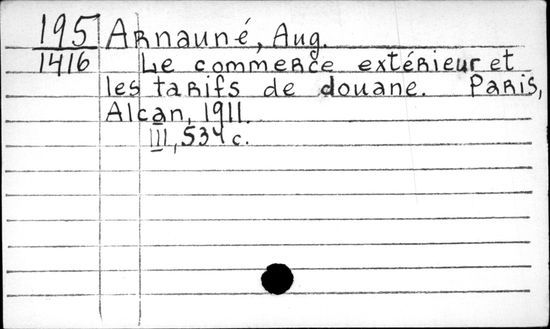 195 Arnauné, Aug.
1416 Le commerce extérieur et
les tarifs de douane. Paris,
Alcan, 1911.
III, 534 c.